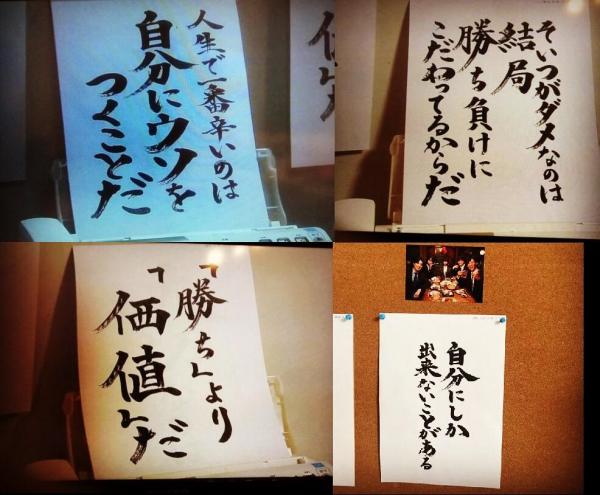 人生で一番辛いのは
自分にウソを
つくことだ
そいつがダメなのは
結局
勝ち負けに
こだわってるからだ
「勝ち」より
「価値」だ
自分にしか
出来ないことがある